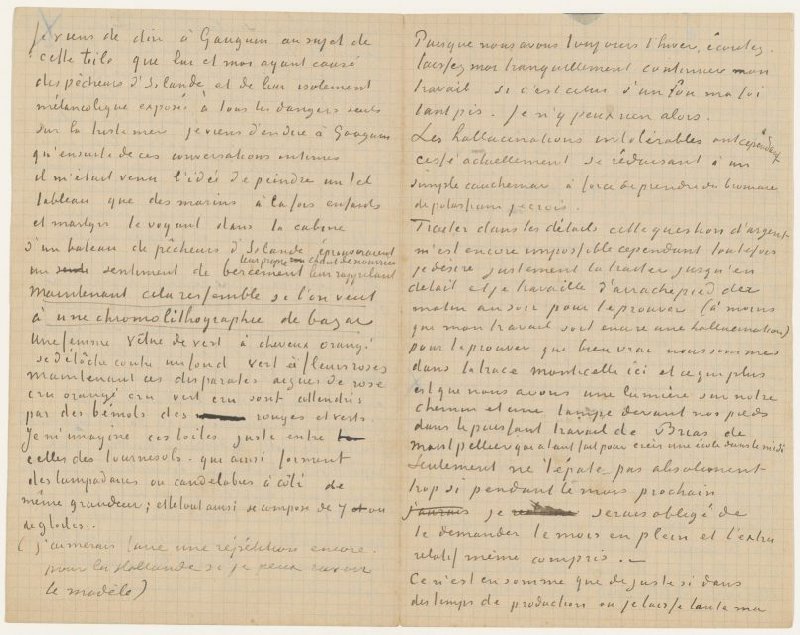 Je viens de dire à Gauguin au sujet de
cette toile que lui et moi ayant causé
des pêcheurs d'Islande et de leur isolement
mélancolique exposés à tous les dangers seuls
sur la triste mer je viens d'en dire à Gauguin
qu'ensuite de ces conversations intimes
il m'était venu l'idée de peindre un tel
tableau que des marins à la fois enfants
et martyrs le voyant dans la cabine
d'un bateau de pêcheurs d'Islande éprouveraient
un sentiment de bercement leur rappelant
leur propre chant de nourrice
Maintenant cela ressemble si l'on veut
à une chromolithographie de bazar
Une femme vêtue de vert à cheveux orangé
se détache contre un fond vert à fleurs roses
Maintenant ces disparates aigues de rose
cru orangé cru vert cru sont attendris
par des bémols des rouges et verts
Je m'imagine ces toiles juste entre
celles des tournesols - qui ainsi forment
des lampadaires ou candelabres à côté de
même grandeur; et le tout ainsi se compose de 7 ou
de 9 toiles.
(j'aimerais faire une répétition encore
pour la Hollande si je peux ravoir
le modèle)
Puisque nous avons toujours l'hiver, écoutez.
laissez moi tranquillement continuer mon
travail si c'est celui d'un fou ma foi
tant pis. Je n'y peux rien alors.
Les hallucinations intolérables ont cependant
cessé actuellement se réduisant à un
simple cauchemar à force de prendre du bromure
de potassium je crois.
Traiter dans les détails cette question d'argent
m'est encore impossible cependant toutefois
je désire justement la traiter jusqu'en
detail et je travaille d'arrache pied de
matin au soir pour te prouver (à moins
que mon travail soit encore une hallucination)
pour te prouver que bien vrai nous sommes
dans la trace Monticelli ici et ce qui plus
est que nous avons une lumière sur notre
chemin et une lampe devant nos pieds
dans le puissant travail de Brias de
Montpellier qui a tant fait pour créer une école dans le midi
Seulement ne t'épate pas absolument
trop si pendant le mois prochain
j'aurais je serais obligé de
te demander le mois en plein et l'extra
relatif même compris. -
Ce n'est en somme que de juste si dans
des temps de production où je laisse toute ma